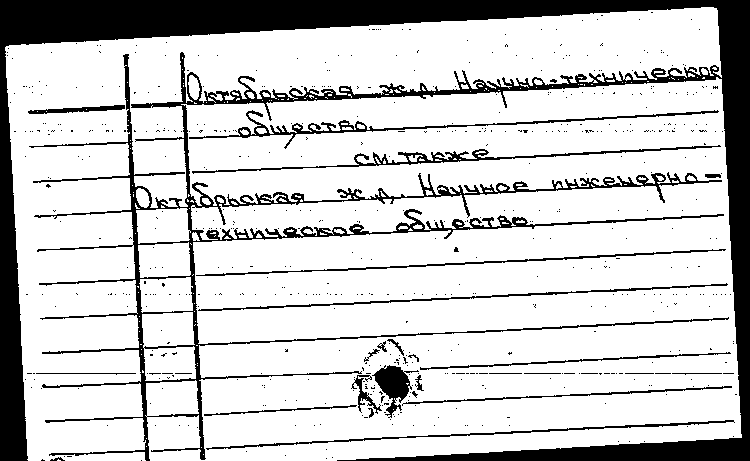 Октябрьская ж.д. Научно-техническое
общество.
см. также
Октябрьская ж.д. Научное инженерно-
техническое общество.